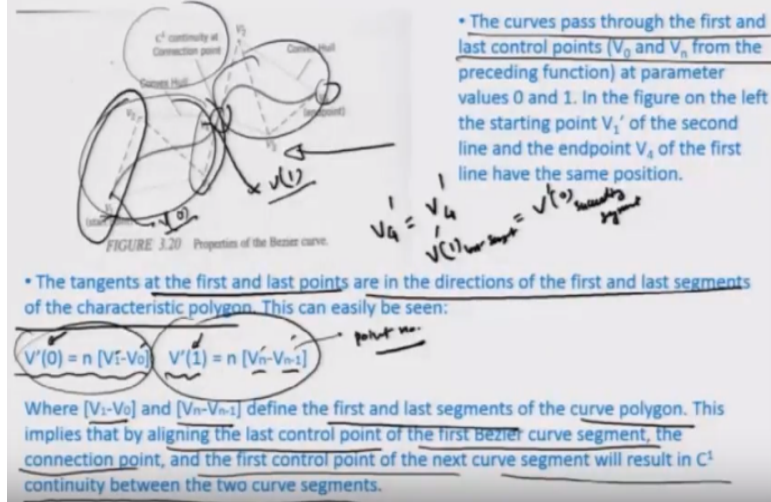 C¹ continuity at
Connection point
V₂
Convex Hull
Convex Hull
V₂
(endpoint)
V₃'
V₁
(start
V(0)
V(1)
FIGURE 3.20 Properties of the Bezier curve.
• The curves pass through the first and
last control points (V₀ and Vₙ from the
preceding function) at parameter
values 0 and 1. In the figure on the left
the starting point V₁′ of the second
line and the endpoint V₄ of the first
line have the same position.
V'(0)
V'(1)
• The tangents at the first and last points are in the directions of the first and last segments
of the characteristic polygon. This can easily be seen:
V'(0) = n [V₁-V₀] V'(1) = n [Vₙ-Vₙ₋₁]
point no.
Where [V₁-V₀] and [Vₙ-Vₙ₋₁] define the first and last segments of the curve polygon. This
implies that by aligning the last control point of the first Bezier curve segment, the
connection point, and the first control point of the next curve segment will result in C¹
continuity between the two curve segments.